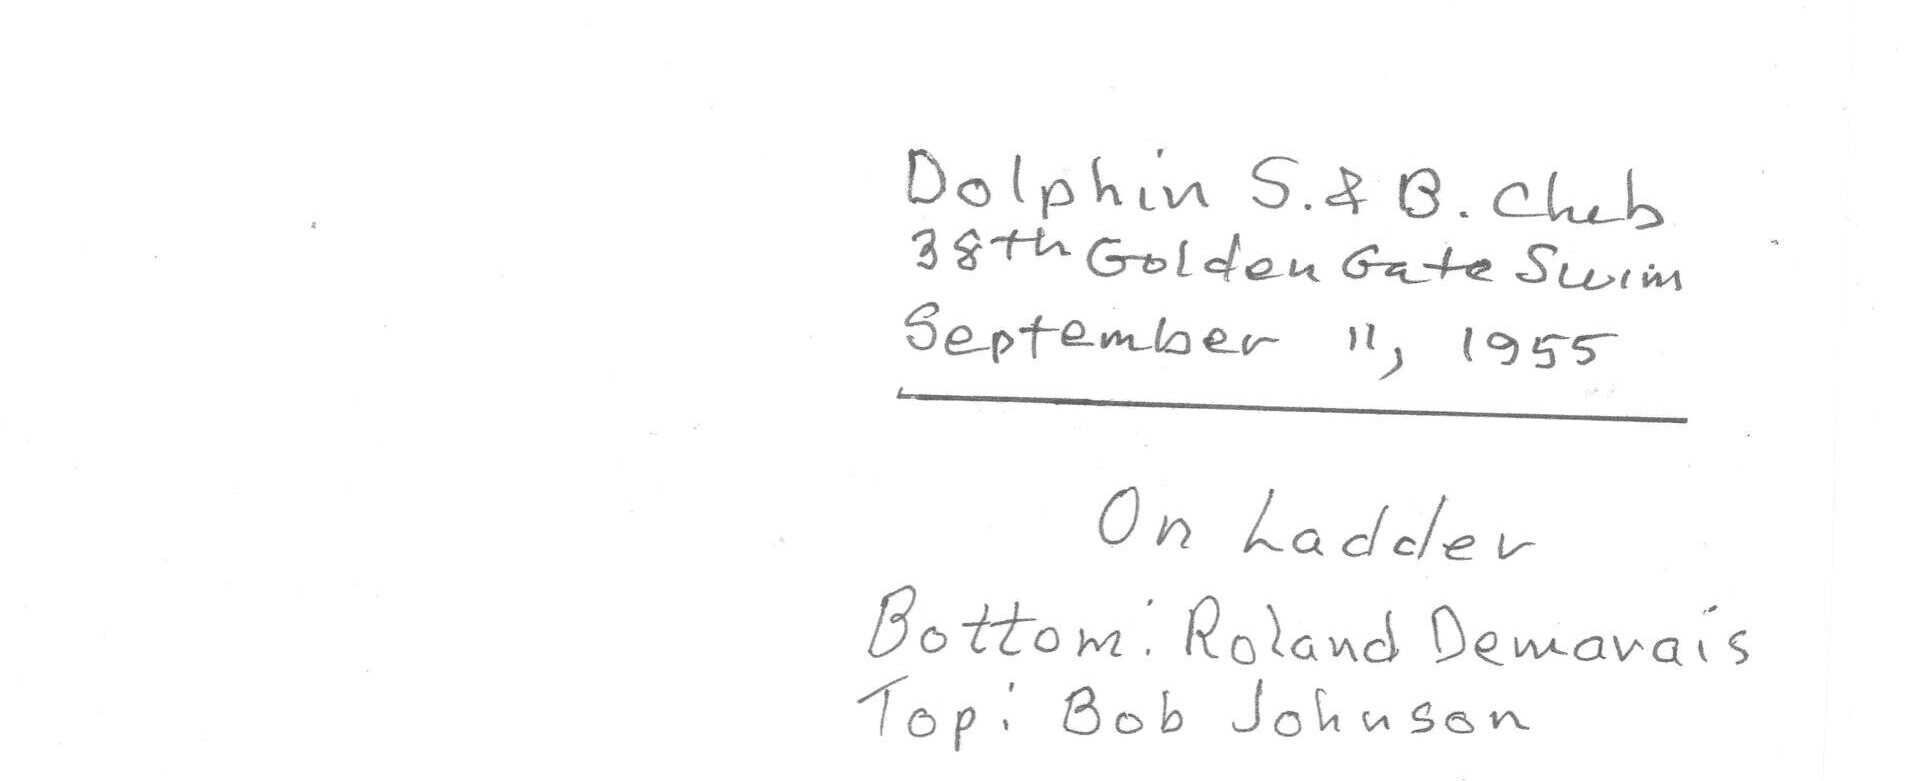 Dolphin S. & B. Club
38th Golden Gate Swim
September 11, 1955
On Ladder
Bottom: Roland Demarais
Top: Bob Johnson